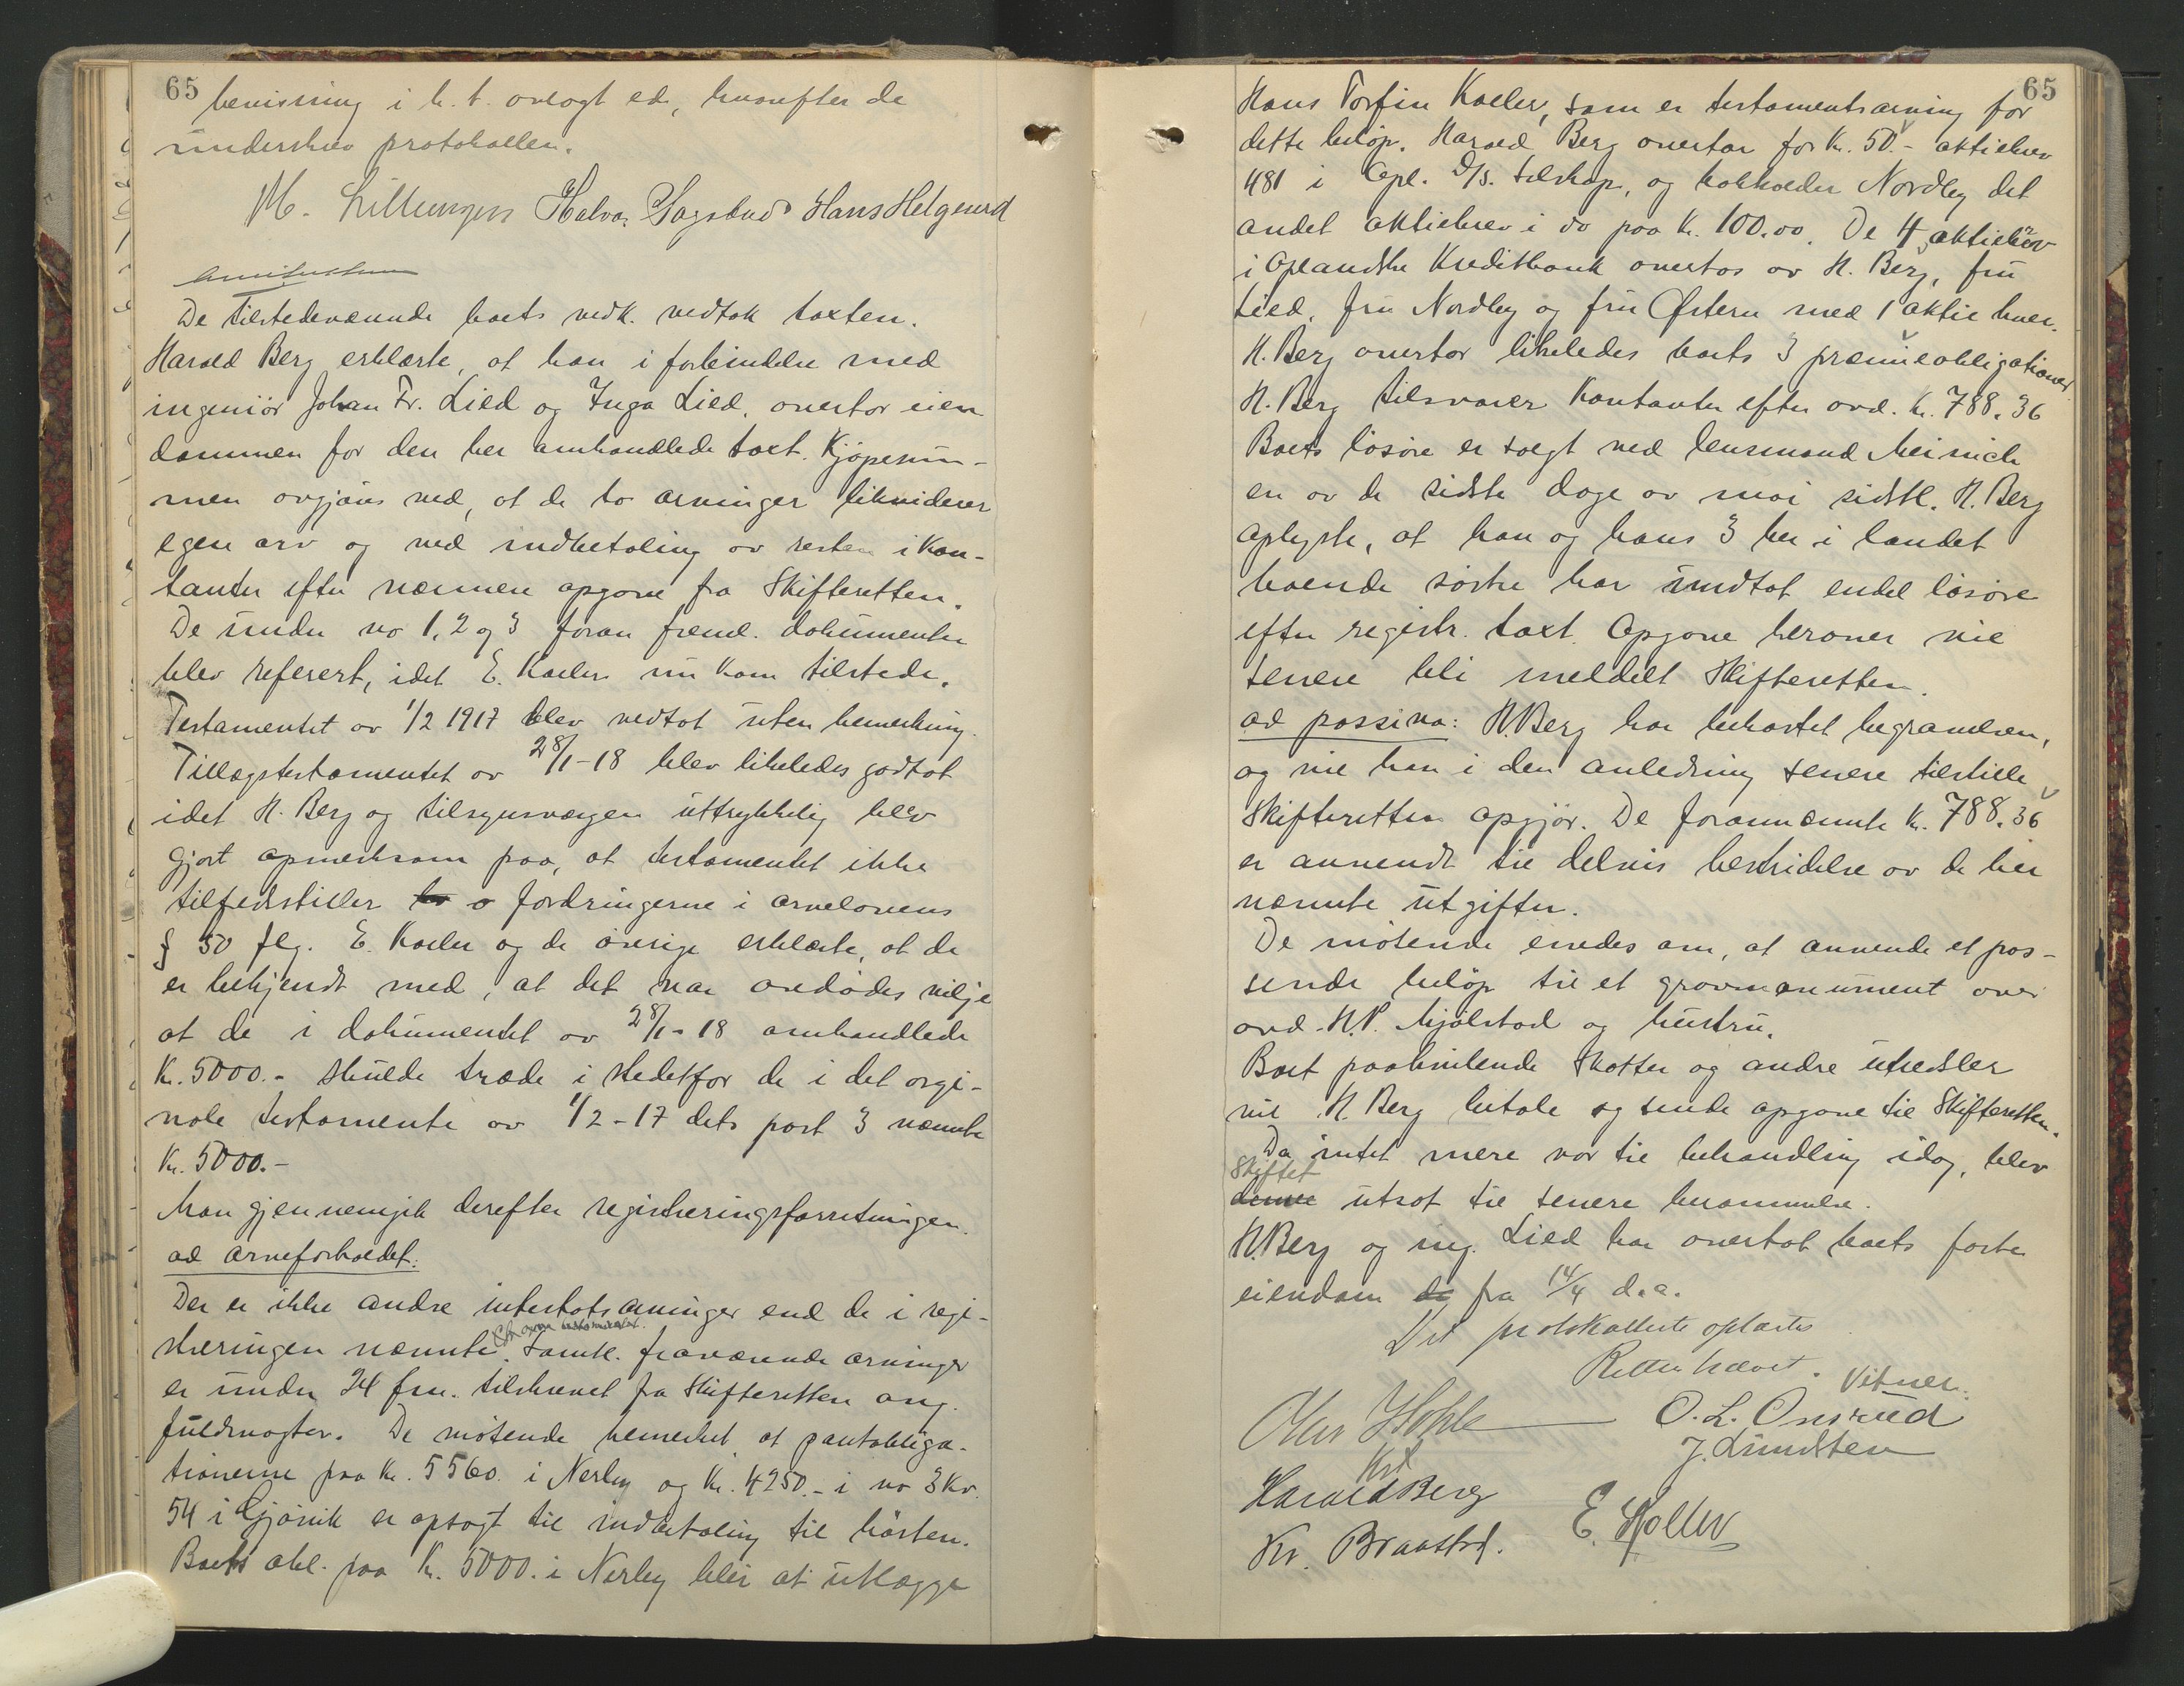 65
bevisning i h. t. avlagt ed, hvorefter de
underskrev protokollen.
M. Lillemgen Halvor Sagstud Hans Helgerud
De tilstedeværende boets vedk. vedtok taxten.
Harald Berg erklærte, at han i forbindelse med
ingeniör Johan Fr. Lied og Inga Lied, overtar eien
dommen for den her omhandlede taxt. Kjöpesum-
men avgjöres ved, at de to arvinger likviderer
egen arv og ved indbetaling av resten i kon-
tanter efter nærmere opgave fra Skifteretten.
De under no 1, 2 og 3 foran freml. dokumenter
blev referert, idet E. Koller nu kom tilstede.
Testamentet av 1/2 1917 blev vedtat uten bemerkning.
Tillægstestamentet av 28/1-18 blev likeledes godtat
idet H. Berg og tilsynsværgen uttrykkelig blev
gjort opmerksom paa, at testamentet ikke
tilfedsstiller fordringerne i arvelovens
§ 50 flg. E. Koller og de övrige erklærte, at de
er bekjendt med, at det var avdödes vilje
at de i dokumentet av 28/1-18 omhandlede
Kr. 5000.- skulde træde i stedetfor de i det orgi-
nale testamente av 1/2-17 dets post 3 nævnte
Kr. 5000.-
Man gjennemgik derefter registreringsforretningen.
ad arveforholdet:
Der er ikke andre intestatsarvinger end de i regi-
streringen nævnte. Samtl. fraværende arvinger
er under 24 frm. tilskrevet fra Skifteretten ang.
fuldmagter. De mötende bemerket at pantobliga-
tionerne paa Kr. 5560. i Nerby og Kr. 4250.- i no 3 Kv.
54 i Gjövik er opsagt til indbetaling til hösten.
Boets obl. paa Kr. 5000. i Nerby blir at utlægge
65
Hans Torfin Koller, som er testamentsarving for
dette belöp. Harald Berg overtar for Kr. 50.- aktiebrev
481 i Opl. D/s. selskap, og beholder Nordby det
andet aktiebrev i do paa Kr. 100.00. De 4 aktiebrev
i Oplandske Kreditbank overtas av H. Berg, fru
Lied, fru Nordby og fru Östern med 1 aktie hver.
H. Berg overtar likeledes boets 3 præmieobligationer
H. Berg tilsvarer kontanter efter avd. Kr. 788.36
Boets lösöre er solgt ved lensmand Meinich
en av de sidste dage av mai sidstl. H. Berg
oplyste, at han og hans 3 her i landet
boende söstre har undtat endel lösöre
efter registr. taxt. Opgave herover vil
senere bli meddelt Skifteretten.
ad passiva: H. Berg har bekostet begravelsen,
og vil han i den anledning senere tilstille
Skifteretten opgjör. De forannævnte Kr. 788.36
er anvendt til delvis bestridelse av de her
nævnte utgifter.
De mötende enedes om, at anvende et pas-
sende belöp til et gravmonument over
avd. H. P. Mjölstad og hustru.
Boet paahvilende skatter og andre utredsler
vil H. Berg betale og sende opgave til Skifteretten.
Da intet mere var til behandling idag, blev
Skiftet
denne utsat til senere berammelse.
H. Berg og ing. Lied har overtat boets faste
eiendom fra 14/4 d.a.
Det protokollerte oplæstes
Retten hævet. Vitner:
O. L. Onsrud
J. Lundsten
Harald Berg
E. Koller
Kr. Braastad.